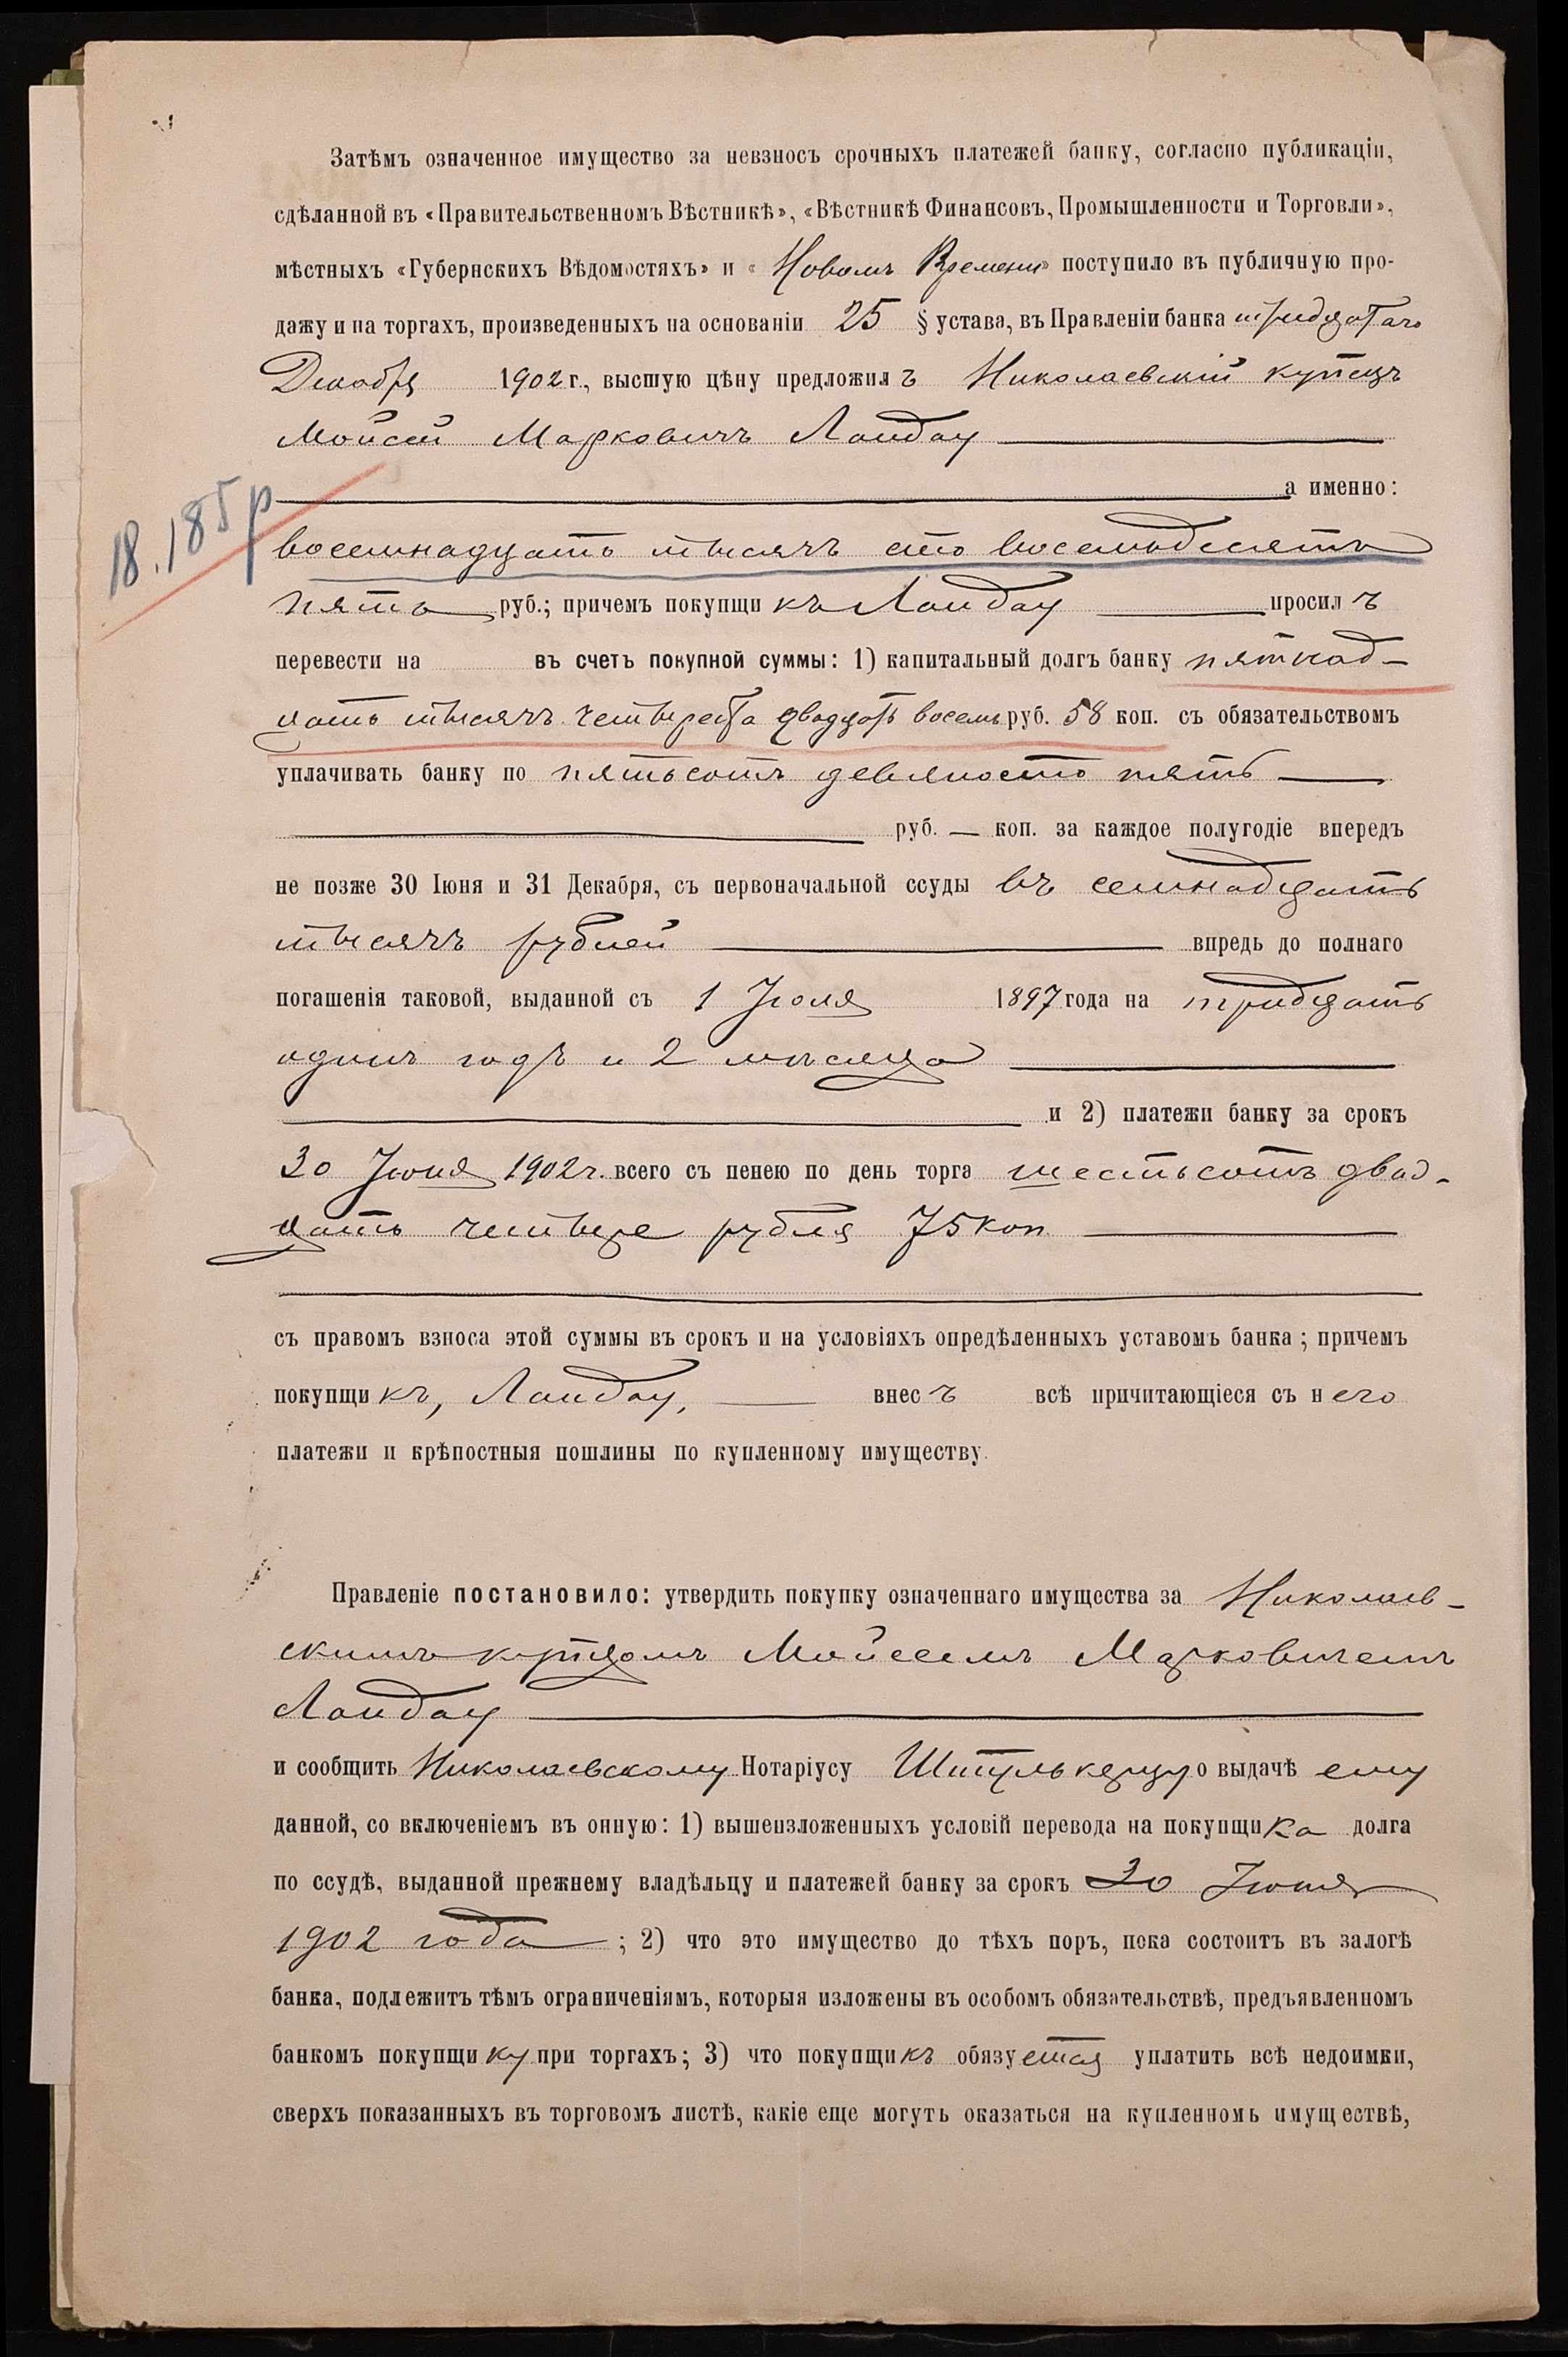 Затѣмъ означенное имущество за невзносъ срочныхъ платежей банку, согласно публикаціи,
сдѣланной въ «Правительственномъ Вѣстникѣ», «Вѣстникѣ Финансовъ, Промышленности и Торговли»,
мѣстныхъ «Губернскихъ Вѣдомостяхъ» и «Новомъ Времени» поступило въ публичную про-
дажу и на торгахъ, произведенныхъ на основаніи 25 § устава, въ Правленіи банка тридцатаго
Декабря 1902 г., высшую цѣну предложилъ Николаевскій купецъ
Мойсей Марковичъ Ландау
а именно:
18.185 р
восемнадцать тысячъ сто восемьдесятъ
пять руб.; причемъ покупщикъ Ландау просилъ
перевести на въ счетъ покупной суммы: 1) капитальный долгъ банку пятнад-
цать тысячъ четыреста двадцать восемь руб. 58 коп. съ обязательствомъ
уплачивать банку по пятьсотъ девяносто пять
руб. — коп. за каждое полугодіе впередъ
не позже 30 Іюня и 31 Декабря, съ первоначальной ссуды въ семнадцать
тысячъ рублей впредь до полнаго
погашенія таковой, выданной съ 1 Іюля 1897 года на тридцать
одинъ годъ и 2 мѣсяца
и 2) платежи банку за срокъ
30 Іюня 1902 г. всего съ пенею по день торга шестьсотъ двад-
цать четыре рубля 75 коп.
съ правомъ взноса этой суммы въ срокъ и на условіяхъ опредѣленныхъ уставомъ банка; причемъ
покупщикъ, Ландау, внесъ всѣ причитающіеся съ него
платежи и крѣпостныя пошлины по купленному имуществу.
Правленіе постановило: утвердить покупку означеннаго имущества за Николаев-
скимъ купцомъ Мойсеемъ Марковичемъ
Ландау
и сообщить Николаевскому Нотаріусу о выдачѣ ему
данной, со включеніемъ въ оную: 1) вышеизложенныхъ условій перевода на покупщика долга
по ссудѣ, выданной прежнему владѣльцу и платежей банку за срокъ 30 Іюня
1902 года; 2) что это имущество до тѣхъ поръ, пока состоитъ въ залогѣ
банка, подлежитъ тѣмъ ограниченіямъ, которыя изложены въ особомъ обязательствѣ, предъявленномъ
банкомъ покупщику при торгахъ; 3) что покупщикъ обязуется уплатить всѣ недоимки,
сверхъ показанныхъ въ торговомъ листѣ, какіе еще могутъ оказаться на купленномъ имуществѣ,